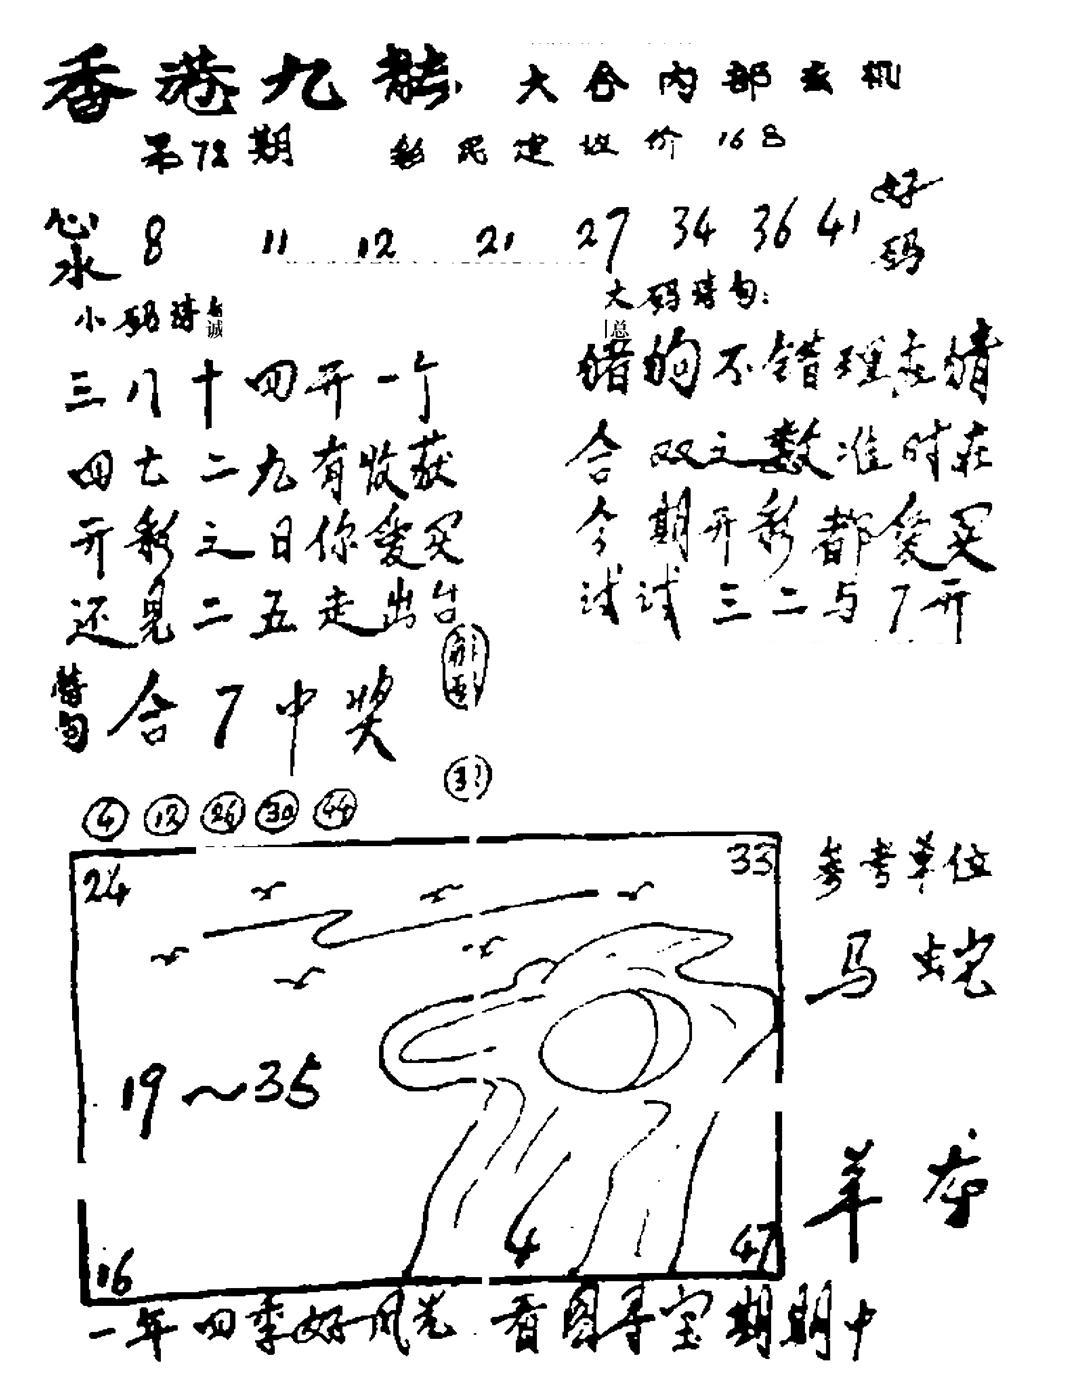 香港九龙 大合内部玄机
第72期 彩民建议价168
心水 8 11 12 21 27 34 36 41 好码
小码诗
大码诗句:
三八十四开一个
四七二九有收获
开彩之日你爱买
还见二五走出台
猪狗不错理去猜
合双之数准时在
今期开彩都爱买
试试三二与7开
诗句 合7中奖
4 12 26 30 44
24 33
参考单位
马 蛇
19~35
羊
16 4 47
一年四季好风光 看图寻宝期期中